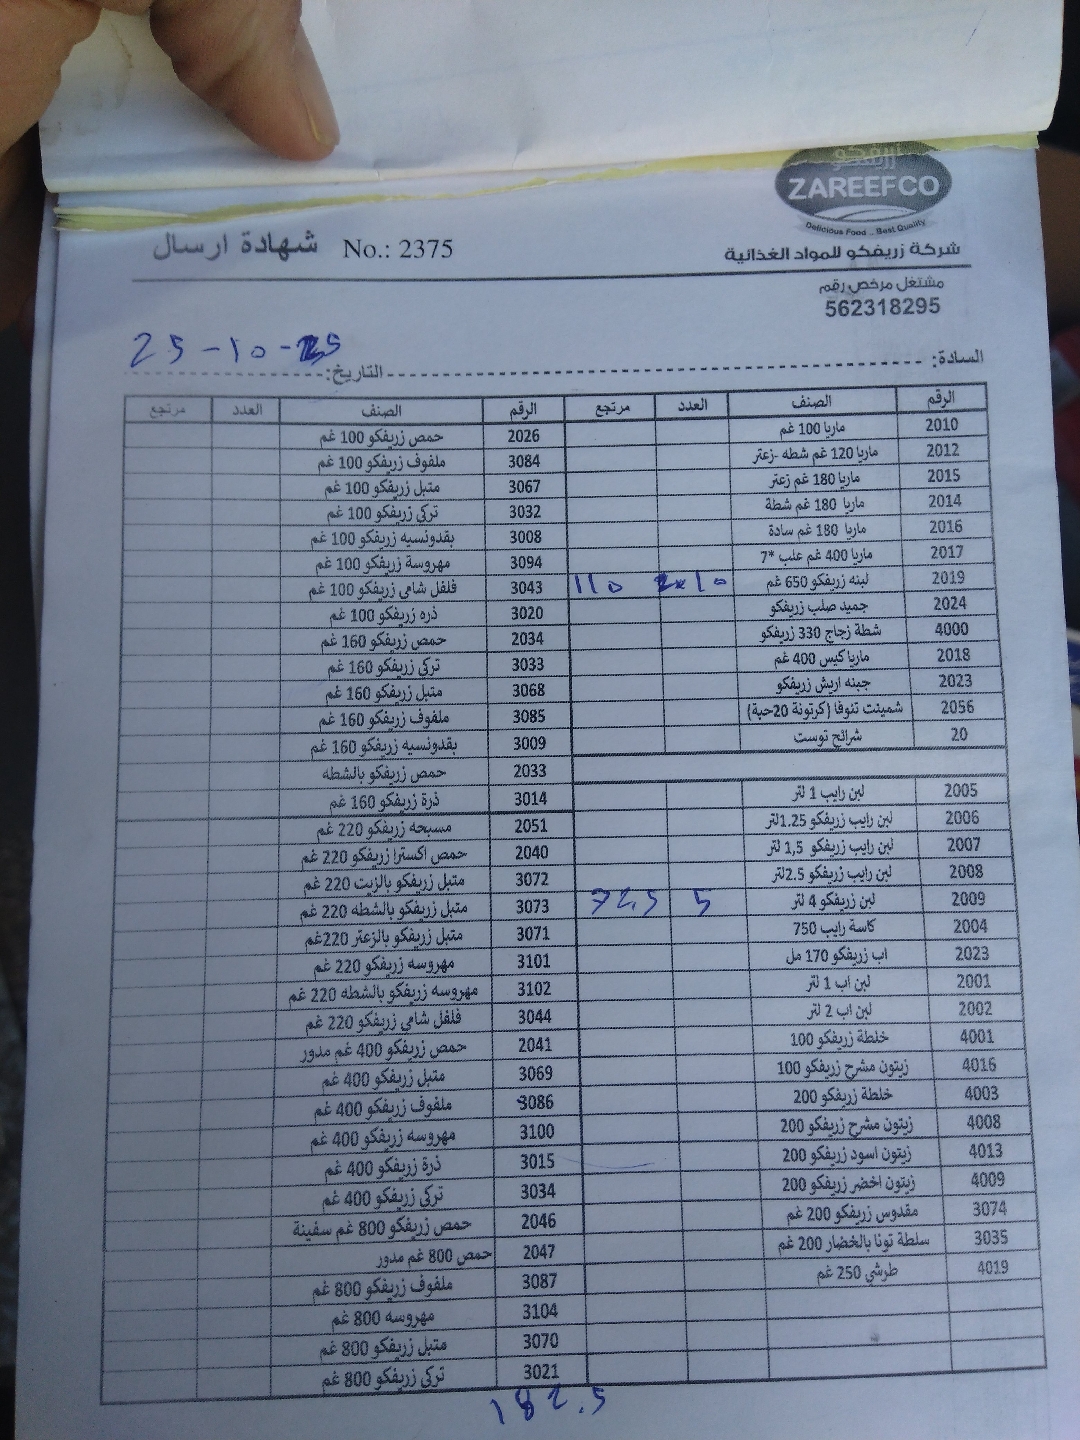 زريفكو
ZAREEFCO
Delicious Food .. Best Quality
شهادة ارسال No.: 2375
شركة زريفكو للمواد الغذائية
مشتغل مرخص رقم
562318295
25-10-25
السادة: التاريخ:
الرقم الصنف العدد مرتجع الرقم الصنف العدد مرتجع
2010 ماريا 100 غم 2026 حمص زريفكو 100 غم
2012 ماريا 120 غم شطه -زعتر 3084 ملفوف زريفكو 100 غم
2015 ماريا 180 غم زعتر 3067 متبل زريفكو 100 غم
2014 ماريا 180 غم شطة 3032 تركي زريفكو 100 غم
2016 ماريا 180 غم سادة 3008 بقدونسيه زريفكو 100 غم
2017 ماريا 400 غم علب *7 3094 مهروسة زريفكو 100 غم
2019 لبنه زريفكو 650 غم 10 110 3043 فلفل شامي زريفكو 100 غم
2024 جميد صلب زريفكو 3020 ذره زريفكو 100 غم
4000 شطة زجاج 330 زريفكو 2034 حمص زريفكو 160 غم
2018 ماريا كيس 400 غم 3033 تركي زريفكو 160 غم
2023 جبنه اريش زريفكو 3068 متبل زريفكو 160 غم
2056 شمينت تنوفا (كرتونة 20حبة) 3085 ملفوف زريفكو 160 غم
20 شرائح توست 3009 بقدونسيه زريفكو 160 غم
2033 حمص زريفكو بالشطه
2005 لبن رايب 1 لتر 3014 ذرة زريفكو 160 غم
2006 لبن رايب زريفكو 1.25لتر 2051 مسبحه زريفكو 220 غم
2007 لبن رايب زريفكو 1,5 لتر 2040 حمص اكسترا زريفكو 220 غم
2008 لبن رايب زريفكو 2.5لتر 3072 متبل زريفكو بالزيت 220 غم
2009 لبن زريفكو 4 لتر 5 72.5 3073 متبل زريفكو بالشطه 220 غم
2004 كاسة رايب 750 3071 متبل زريفكو بالزعتر 220غم
2023 اب زريفكو 170 مل 3101 مهروسه زريفكو 220 غم
2001 لبن اب 1 لتر 3102 مهروسه زريفكو بالشطه 220 غم
2002 لبن اب 2 لتر 3044 فلفل شامي زريفكو 220 غم
4001 خلطة زريفكو 100 2041 حمص زريفكو 400 غم مدور
4016 زيتون مشرح زريفكو 100 3069 متبل زريفكو 400 غم
4003 خلطة زريفكو 200 3086 ملفوف زريفكو 400 غم
4008 زيتون مشرح زريفكو 200 3100 مهروسه زريفكو 400 غم
4013 زيتون اسود زريفكو 200 3015 ذرة زريفكو 400 غم
4009 زيتون اخضر زريفكو 200 3034 تركي زريفكو 400 غم
3074 مقدوس زريفكو 200 غم 2046 حمص زريفكو 800 غم سفينة
3035 سلطة تونا بالخضار 200 غم 2047 حمص 800 غم مدور
4019 طرشي 250 غم 3087 ملفوف زريفكو 800 غم
3104 مهروسه 800 غم
3070 متبل زريفكو 800 غم
3021 تركي زريفكو 800 غم
182.5